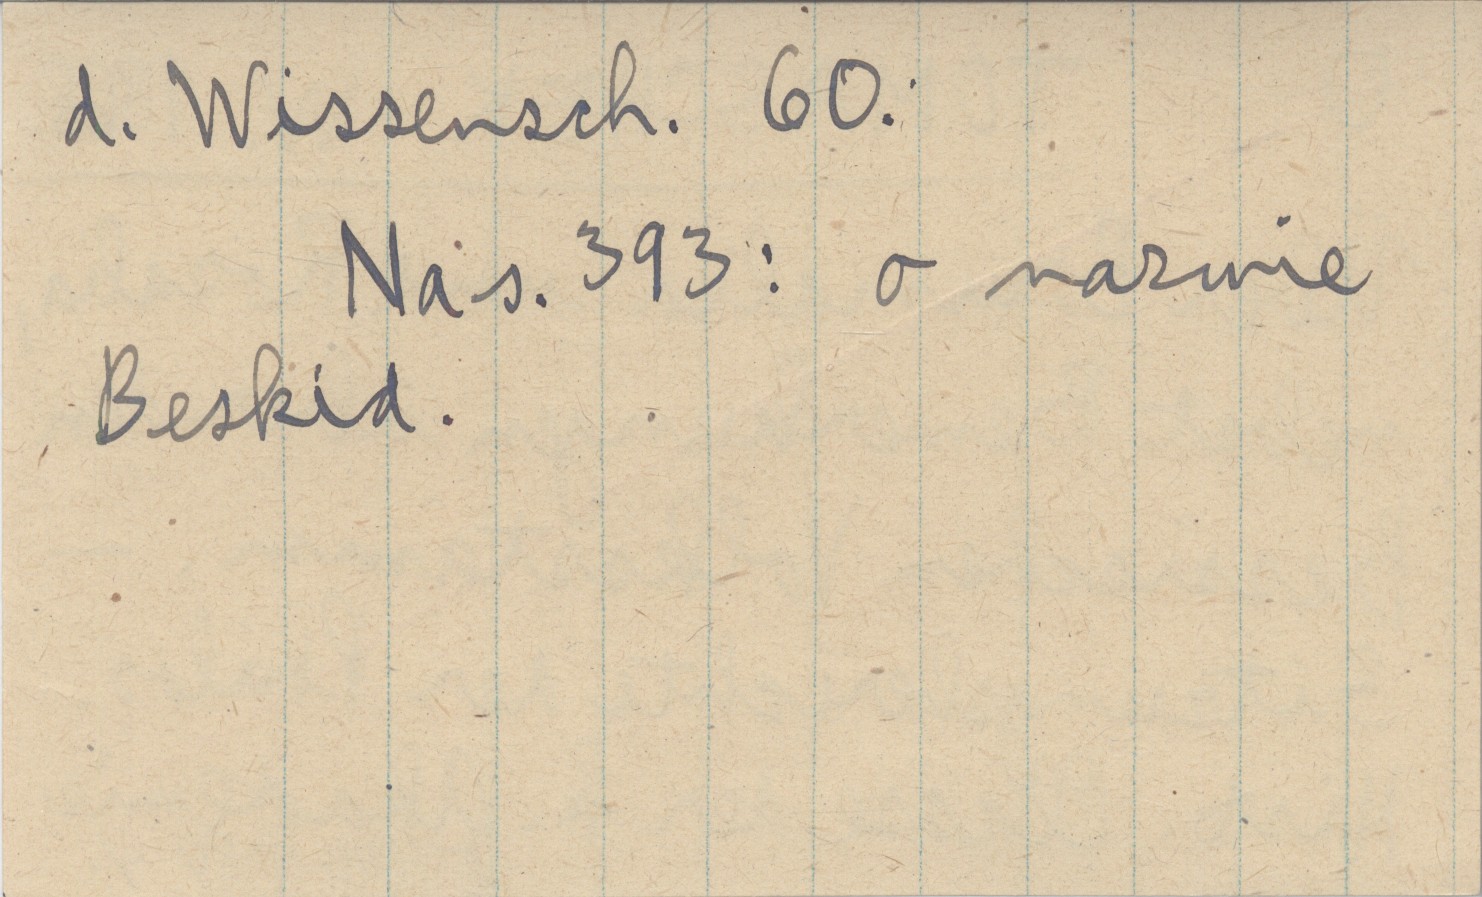 d. Wissensch. 60.:
Na s. 393: o nazwie
Beskid.